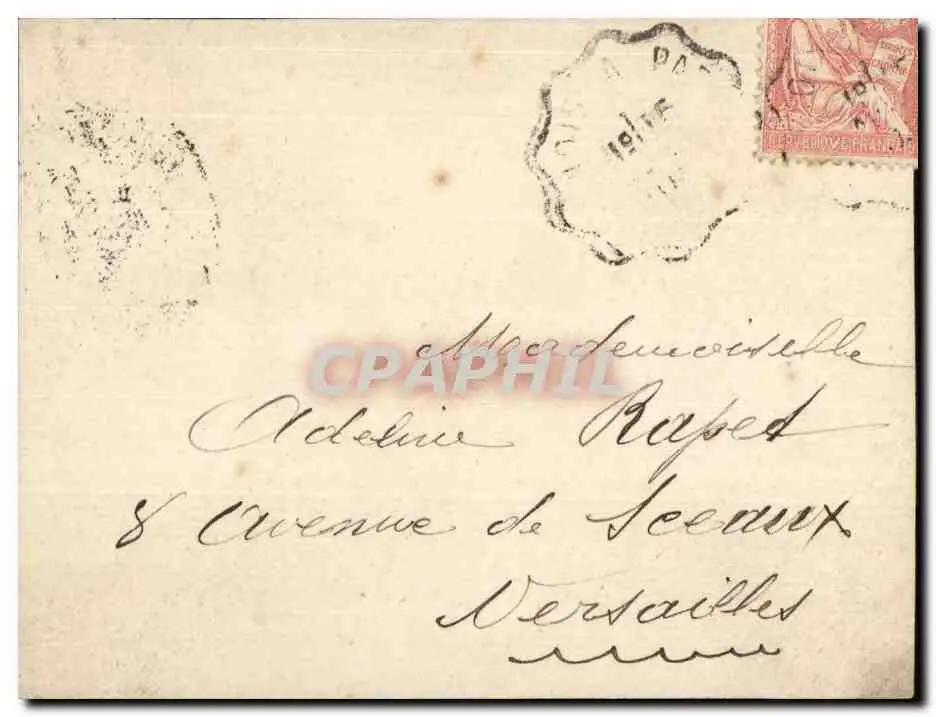 RÉPUBLIQUE FRANÇAISE
CPAPHIL
Mademoiselle
Adeline Rapet
8 avenue de Sceaux
Versailles